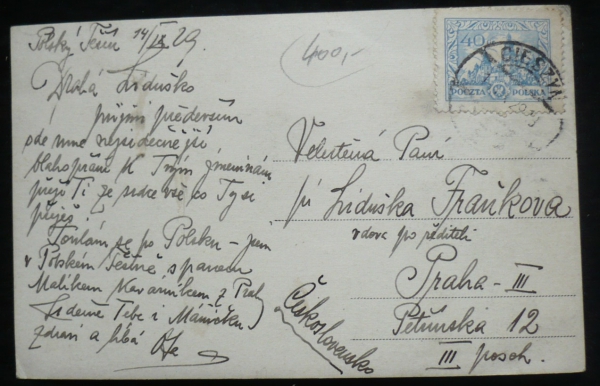 Polský Těšín 14/IX 29.
Drahá Liduško
přijmi především
ode mne nejsrdečnější
blahopřání k Tvým jmeninám
přeji Ti ze srdce vše co Ty si
přeješ.
Toulám se po Polsku – jsem
v Polském Těšíně s panem
Malíkem Kavárníkem z Prahy
Srdečně Tebe i Mámičku
zdraví a líbá
400,-
40
POCZTA POLSKA
CIESZYN
Velectěná Paní
pí Liduška Fraňkova
vdova po řediteli
Praha – III
Petřínska 12
III posch.
Československo